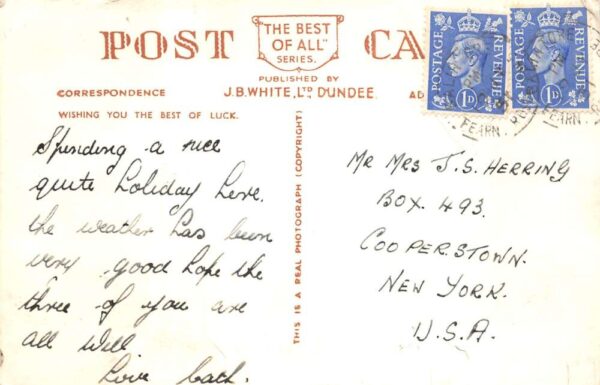 POST CA
"THE BEST
OF ALL"
SERIES.
PUBLISHED BY
J.B. WHITE, LTD DUNDEE.
CORRESPONDENCE
AD
WISHING YOU THE BEST OF LUCK.
Spending a nice
quite holiday here.
the weather has been
very good hope the
three of you are
all well
Love Cath.
THIS IS A REAL PHOTOGRAPH (COPYRIGHT)
POSTAGE
REVENUE
1D
POSTAGE
REVENUE
1D
FEARN.
FEARN.
MR MRS J.S. HERRING
BOX. 493.
COOPERSTOWN.
NEW YORK.
U.S.A.